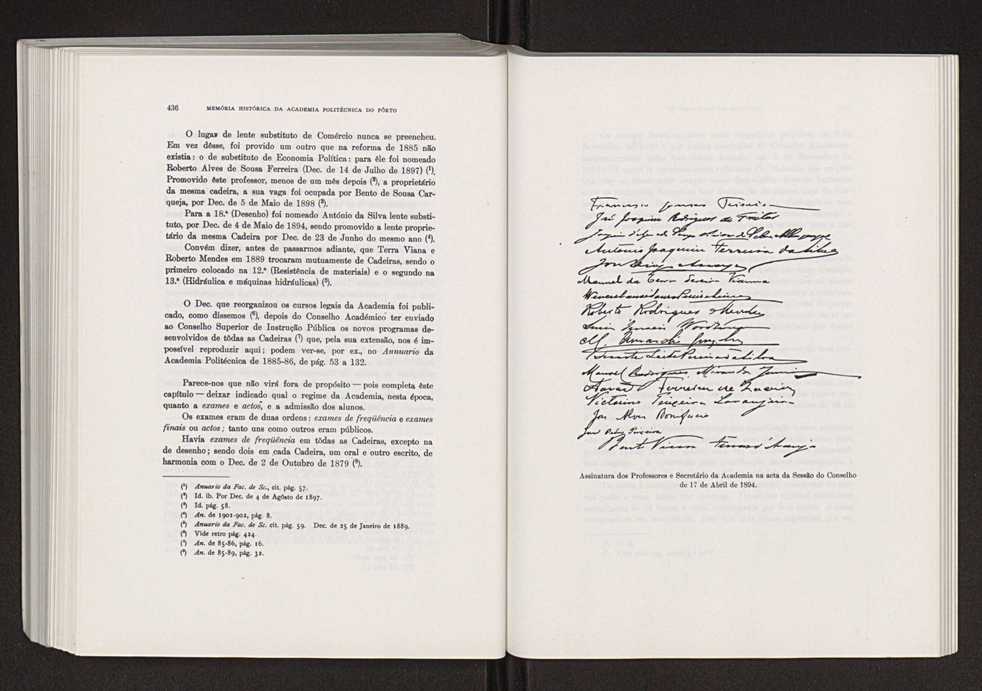 436 MEMÓRIA HISTÓRICA DA ACADEMIA POLITÉCNICA DO PÔRTO
O lugar de lente substituto de Comércio nunca se preencheu.
Em vez dêsse, foi provido um outro que na reforma de 1885 não
existia: o de substituto de Economia Política: para êle foi nomeado
Roberto Alves de Sousa Ferreira (Dec. de 14 de Julho de 1897) (¹).
Promovido êste professor, menos de um mês depois (²), a proprietário
da mesma cadeira, a sua vaga foi ocupada por Bento de Sousa Car-
queja, por Dec. de 5 de Maio de 1898 (³).
Para a 18.ª (Desenho) foi nomeado António da Silva lente substi-
tuto, por Dec. de 4 de Maio de 1894, sendo promovido a lente proprie-
tário da mesma Cadeira por Dec. de 23 de Junho do mesmo ano (⁴).
Convém dizer, antes de passarmos adiante, que Terra Viana e
Roberto Mendes em 1889 trocaram mutuamente de Cadeiras, sendo o
primeiro colocado na 12.ª (Resistência de materiais) e o segundo na
13.ª (Hidráulica e máquinas hidráulicas) (⁵).
O Dec. que reorganizou os cursos legais da Academia foi publi-
cado, como dissemos (⁶), depois do Conselho Académico ter enviado
ao Conselho Superior de Instrução Pública os novos programas de-
senvolvidos de tôdas as Cadeiras (⁷) que, pela sua extensão, nos é im-
possível reproduzir aqui; podem ver-se, por ex., no Annuario da
Academia Politécnica de 1885-86, de pág. 53 a 132.
Parece-nos que não virá fora de propósito — pois completa êste
capítulo — deixar indicado qual o regime da Academia, nesta época,
quanto a exames e actos, e a admissão dos alunos.
Os exames eram de duas ordens; exames de freqüência e exames
finais ou actos; tanto uns como outros eram públicos.
Havia exames de freqüência em tôdas as Cadeiras, excepto na
de desenho; sendo dois em cada Cadeira, um oral e outro escrito, de
harmonia com o Dec. de 2 de Outubro de 1879 (⁸).
(¹) Anuario da Fac. de Sc., cit. pág. 57.
(²) Id. ib. Por Dec. de 4 de Agôsto de 1897.
(³) Id. pág. 58.
(⁴) An. de 1901-902, pág. 8.
(⁵) Anuario da Fac. de Sc. cit. pág. 59. Dec. de 25 de Janeiro de 1889.
(⁶) Vide retro pág. 424
(⁷) An. de 85-86, pág. 16.
(⁸) An. de 85-89, pág. 32.
Francisco Gomes Teixeira
José Joaquim Rodrigues de Freitas
Joaquim
Antonio Joaquim Ferreira da Silva
Manuel da Terra Vianna
Wenceslau de Sousa Pereira Lima
Roberto Rodrigues Mendes
Duarte Leite Pereira da Silva
Manoel Rodrigues Miranda Junior
Victorino Teixeira Laranjeira
Bento Vieira
Assinatura dos Professores e Secretário da Academia na acta da Sessão do Conselho
de 17 de Abril de 1894.